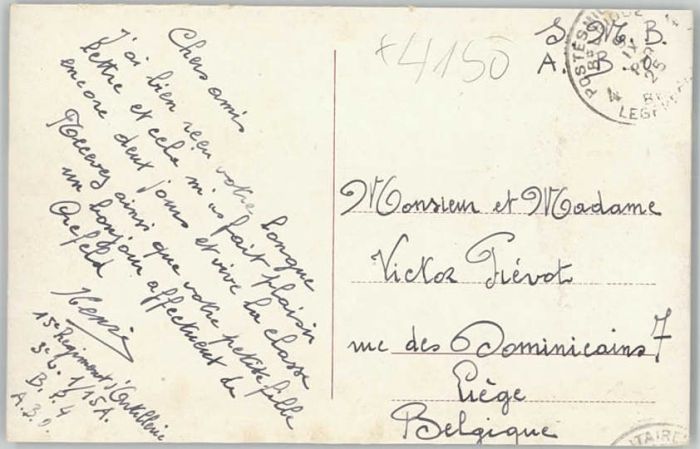 Chers amis
J'ai bien reçu votre longue
lettre et cela m'as fait plaisir
encore deux jours et vive la classe
Recevez ainsi que votre petite fille
un bonjour affectueux de
Crefeld
Henri
15e Régiment d'Artillerie
1/15A.
B. P. 4
A.B.O.
x4150
S. M. B.
A. B. O.
POSTES MIL
BELGIQUE
4
Monsieur et Madame
Victor Piévot
rue des Dominicains 7
Liège
Belgique
ITAIRE